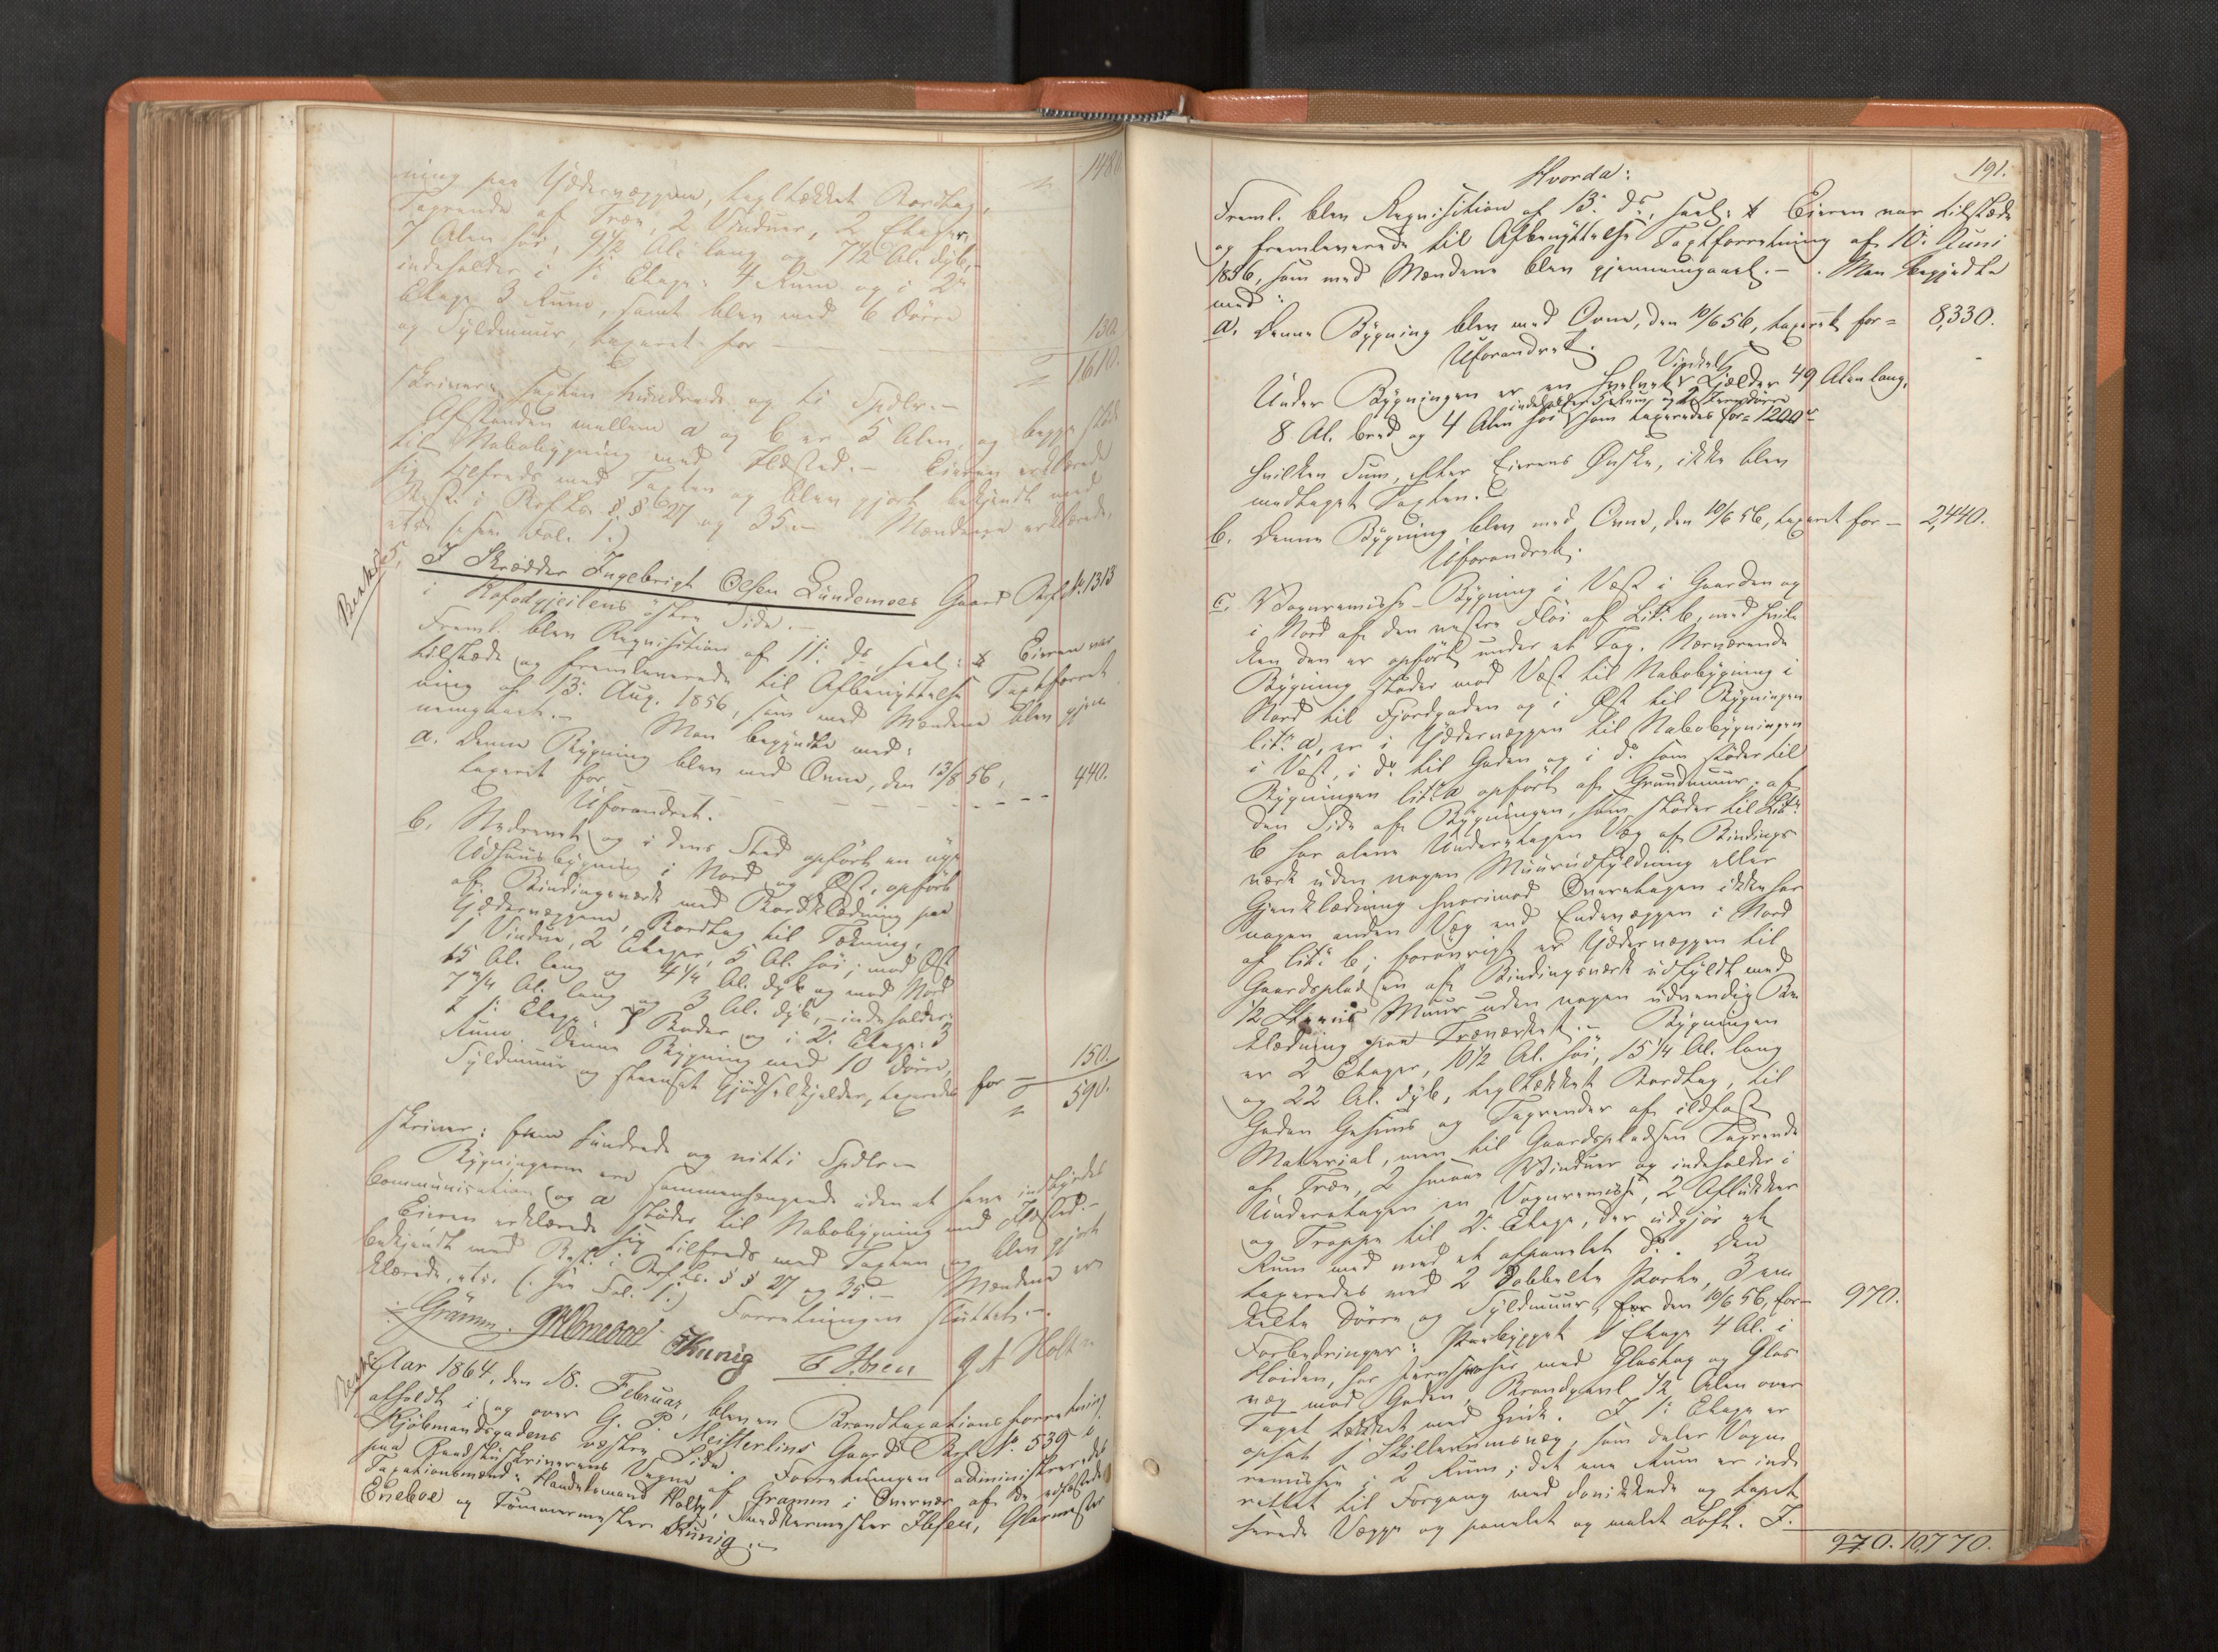 ning paa Ydervæggene, teglhækket Bordtag, ⁓ 1480.
Tagrende af Træ, 2 Vinduer, 2 Etager,
7 Alen høi, 9 1/2 Al: lang og 7 1/2 Al. dyb,
indeholder i 1ste Etage: 4 Rum og i 2den
Etage 3 Rum, samt blev med 6 Dørre
og Syldmuur, taxeret for — 130.
1610.
skriver sexten hundrede og ti Spdlr.—
Afstanden mellem a og b er 5 Alen, og begge støde
til Nabobygning med Ildsted.— Eieren erklærede
sig tilfreds med Taxten og blev gjort bekjendt med
Best: i Brf. Lov §§ 27 og 35.— Mændene erklærede,
etc. (see Fol. 1.)
5, I Skrædder Ingebrigt Olsen Lundemoes Gaard Brf. No 1313
i Kofodgjeilens östre Side.—
Freml. blev Requisition af 11: ds, saal: Eieren var
tilstæde og fremleverede til Afbenyttelse Taxtforret-
ning af 13: Aug. 1856, som med Mændene blev gjen-
nemgaaet.— Man begyndte med:
a. Denne Bygning blev med Ovne, den 13/8 56,
taxeret for — 440.
Uforandret.
b. Nedrevet og i dens Sted opført en nye
Udhuusbygning i Nord og Øst, opført
af Bindingsværk med Bordklædning paa
Ydervæggene, Bordtag til Tækning,
1 Vindue, 2 Etager, 5 Al. høi; mod Øst
15 Al. lang og 4 1/4 Al. dyb og mod Nord
7 3/4 Al. lang og 3 Al. dyb, — indeholder:
I 1: Etage: 7 Boder og i 2: Etage: 3
Rum. Denne Bygning med 10 Dørre,
Syldmuur og steensat Gjødselkjelder, taxeredes for — 150.
590.
skriver: fem hundrede og nitti Spdlr.—
Bygningerne ere sammenhængende uden at have indbyrdes
Communication og a støder til Nabobygning med Ildsted.—
Eieren erklærede sig tilfreds med Taxten og blev gjort
bekjendt med Best: i Brf. Lov. §§ 27 og 35.— Mændene er-
klærede, etc. (see Fol. 1.) Forretningen sluttet.—
Gramm. Eneboe Kunig Ilsen Holte
Aar 1864, den 18. Februar, blev en Brandtaxationsforretning
afholdt i og over G. P. Meisterlins Gaard Brf. No. 539 i
Kjøbmandsgadens vestre Side. Forretningen administreredes
paa Raadstueskriverens Vegne af Gramm i Overvær af de edfæstede
Taxationsmænd: Handelsmand Holte, Snedkermester Ilsen, Glarmester
Eneboe og Tømmermester Kunig.—
191.
Hvorda:
Freml. blev Requisition af 13: ds, saal: Eieren var tilstæde
og fremleverede til Afbenyttelse Taxtforretning af 10: Juni
1856, som med Mændene blev gjennemgaaet.— Man begyndte
med:
a. Denne Bygning blev med Ovne, den 10/6 56, taxeret for = 8,330.
Uforandret.
Under Bygningen er en hvelvet Kjelder 49 Alen lang,
indeholder 5 Rum og 2 Jerndørre
8 Al. bred og 4 Alen høi som taxeredes for = 1200
hvilken Sum, efter Eierens Ønske, ikke blev
medtaget Taxten.
b. Denne Bygning blev med Ovne, den 10/6 56, taxeret for — 2,440.
Uforandret.
c. Vognremisse-Bygning i Vest i Gaarden og
i Nord af den vestre Fløi af Litr. b, med hvil-
ken den er opført under et Tag. Nærværende
Bygning støder mod Vest til Nabobygning i
Nord til Fjordgaden og i Øst til Bygningen
litr. a, er i Ydervæggen til Nabobygningen
i Vest, i do til Gaden og i do som støder til
Bygningen litr. a opført af Grundmuur; af
den Side af Bygningen, som støder til Litr.
b har alene Underetagen Væg af Bindings-
værk uden nogen Muurudfyldning eller
Gjenklædning hvorimod Overetagen ikke har
nogen anden Væg end Endevæggen i Nord
af litr. b; forøvrigt er Ydervæggen til
Gaardspladsen af Bindingsværk udfyldt med
1/2 Steens Muur uden nogen udvendig Be-
klædning paa Træværket.— Bygningen
er 2 Etager, 10 1/2 Al. høi, 15 1/4 Al. lang
og 22 Al. dyb, teglhækket Bordtag, til
Gaden Gesims og Tagrender af ildfast
Material, men til Gaardspladsen Tagrende
af Træ, 2 smaae Vinduer og indeholder i
Underetagen en Vognremisse, 2 Aflukker
og Trappe til 2: Etage, der udgjør et
Rum med et afpanelet do. Den
taxeredes med 2 Dobbelte Porte, 3 en-
kelte Dørre og Syldmuur, den 10/6 56, for — 970.
Forbedringer: Paabygget 1 Etage 4 Al. i
Høiden, har med Glastag og Glas-
væg mod Gaden, Brandgavl 1/2 Alen over
Taget tækket med Zink. I 1: Etage er
opsat 1 Skillerumsvæg, som deler Vogn-
remissen i 2 Rum; det ene Rum er ind-
rettet til Forgang med og tapet-
serede Vægge og panelet og malet Loft. I.
970. 10,770.